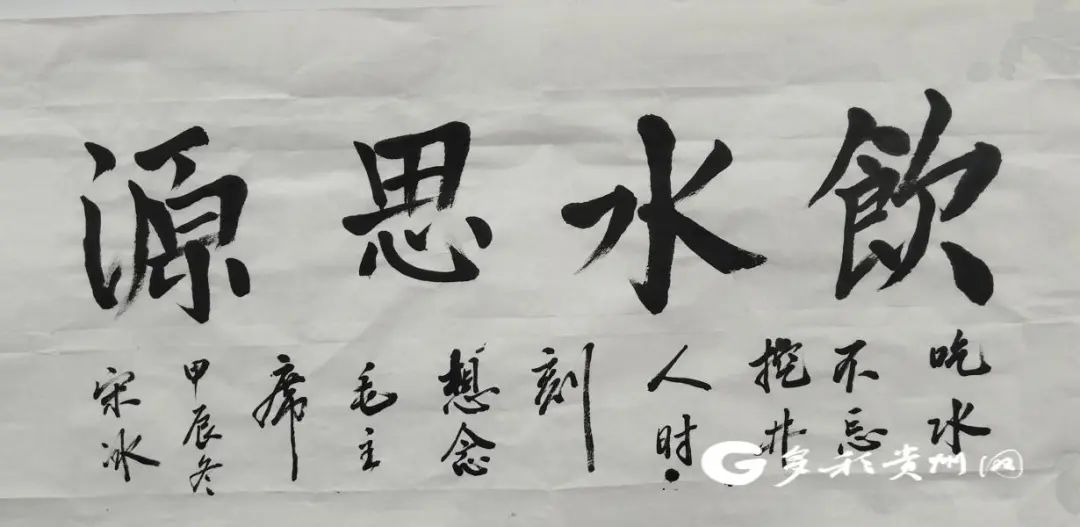 飲水思源
吃水
不忘
挖井
人时、
刻
想念
毛主
席
甲辰冬
宋冰
多彩贵州网